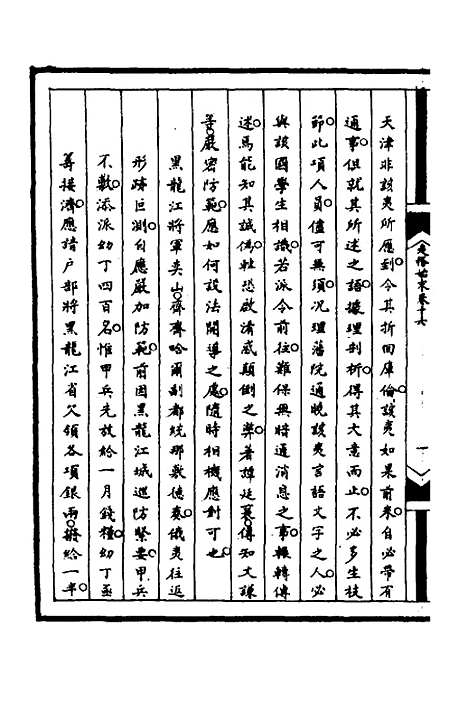 夷務始末卷十六
一
天津非該夷所應到令其折回庫倫該夷如果前來自必帶有
通事但就其所述之語據理剖析得其大意而止不必多生枝
節此項人員儘可無須況理藩院通曉該夷言語文字之人必
與該國學生相識若派令前往難保無暗通消息之事輾轉傳
述焉能知其誠偽壯恐啟淆惑顛倒之弊著譚廷襄傳知文謙
等嚴密防範應如何設法開導之處隨時相機應對可也
黑龍江將軍奕山齊齊哈爾副都統那敷德奏俄夷往返
形跡叵測自應嚴加防範前因黑龍江城巡防緊要甲兵
不敷添派幼丁四百名惟甲兵先放給一月錢糧幼丁亟
籌接濟應請戶部將黑龍江省欠領各項銀兩撥給一年